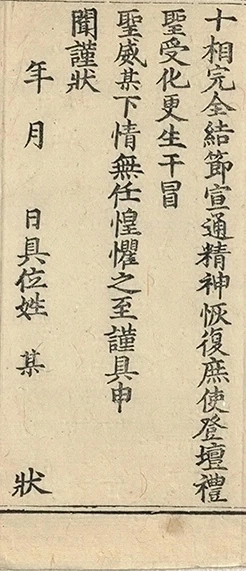 十相完全結節宣通精神恢復庶使登壇禮
聖受化更生干冒
聖威某下情無任惶懼之至謹具申
聞謹狀
年 月 日具位姓 某 狀